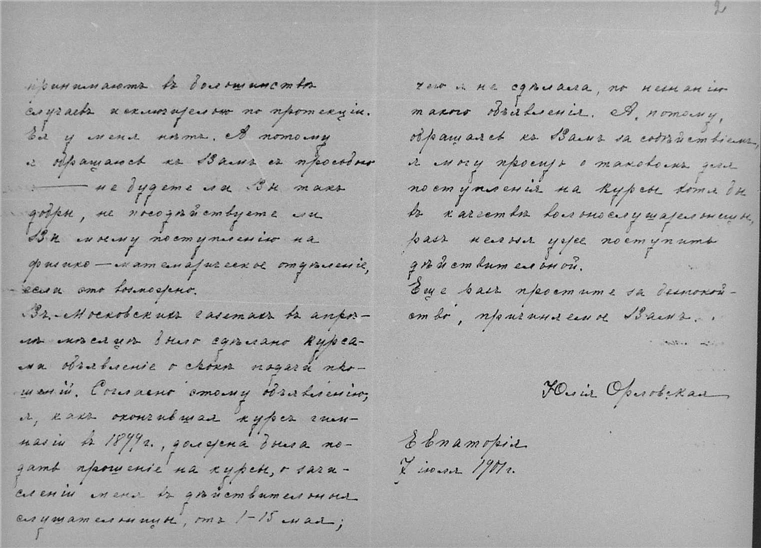 2
принимаютъ въ большинствѣ
случаевъ исключительно по протекціи.
Ея у меня нѣтъ. А потому
я обращаюсь къ Вамъ съ просьбою
— не будете ли Вы такъ
добры, не посодѣйствуете ли
Вы моему поступленію на
физико-математическое отдѣленіе,
если это возможно.
Въ Московскихъ газетахъ въ апрѣ-
лѣ мѣсяцѣ было сдѣлано Курса-
ми объявленіе о срокѣ подачи про-
шеній. Согласно этому объявленію,
я, какъ окончившая курсъ гим-
назіи въ 1899 г., должна была по-
дать прошеніе на курсы, о зачи-
сленіи меня въ дѣйствительныя
слушательницы, отъ 1-15 мая;
чего я не сдѣлала, по незнанію
такого объявленія. А, потому,
обращаясь къ Вамъ за содѣйствіемъ,
я могу просить о таковомъ для
поступленія на Курсы хотя бы
въ качествѣ вольнослушательницы,
разъ нельзя уже поступить
дѣйствительной.
Еще разъ простите за безпокой-
ство, причиняемое Вамъ.
Юлія Орловская
Евпаторія
7 іюля 1901 г.